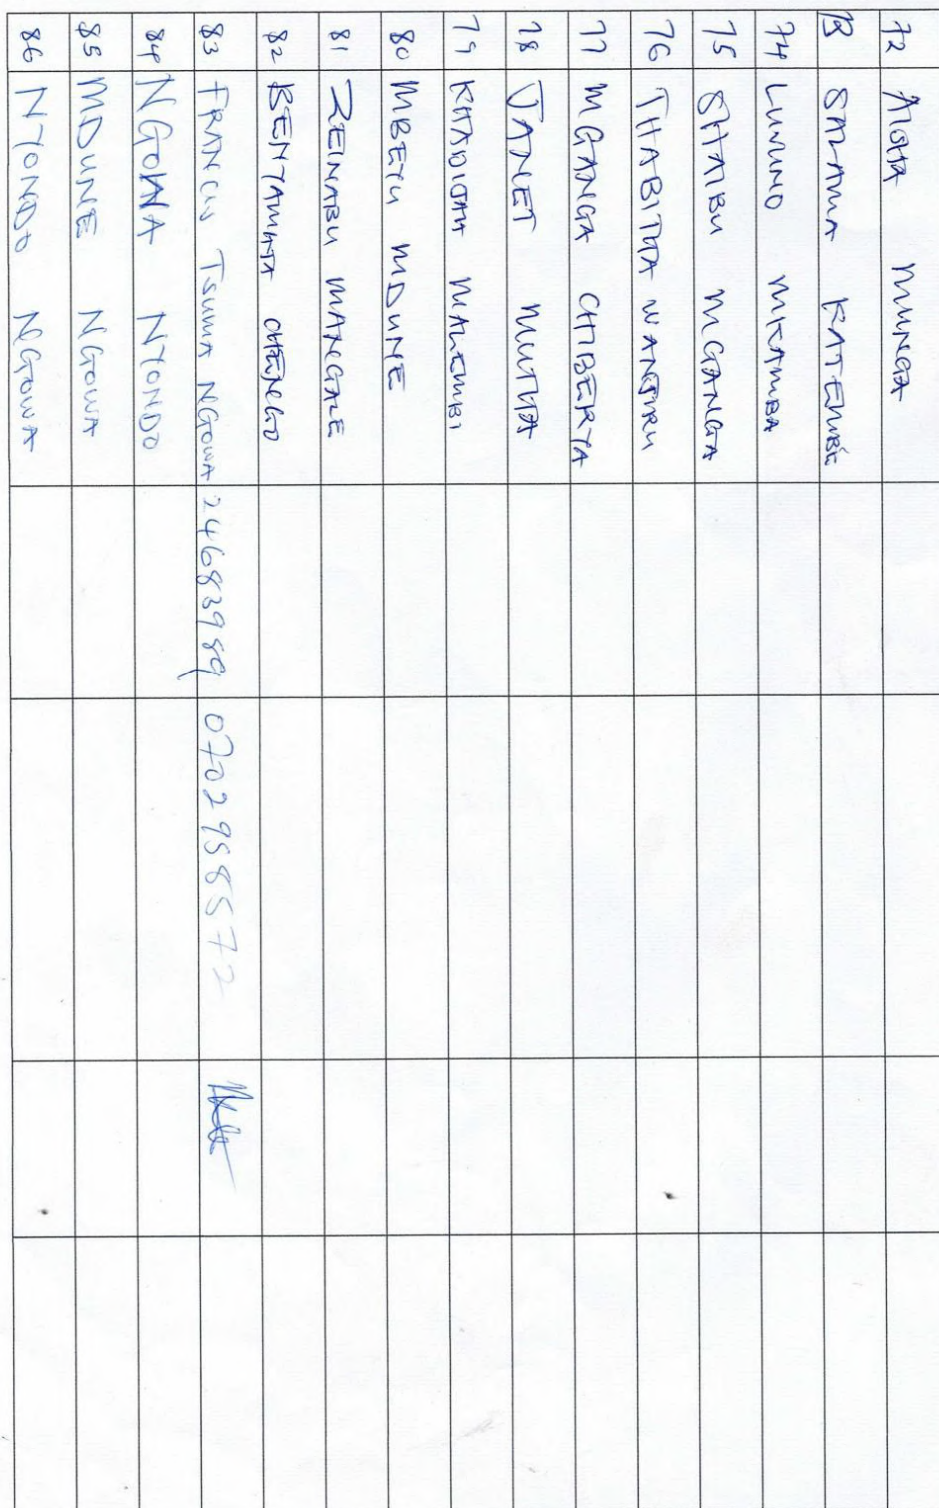 72 AISHA MUNGA
73 SALAMA KATEMBE
74 LUVUNO MKAMBA
75 SHAIBU MGANGA
76 THABITHA WANJIRU
77 MGANGA CHIBERYA
78 JANET MUTHA
79 KHADIJAH MALEMBI
80 MBEYU MDUNE
81 ZEINABU MANGALE
82 BENYAMHA CHENGO
83 FRANCIS TSUMA NGOWA 24683989 0702958572
84 NGOWA NYONDO
85 MDUNE NGOWA
86 NYONDO NGOWA